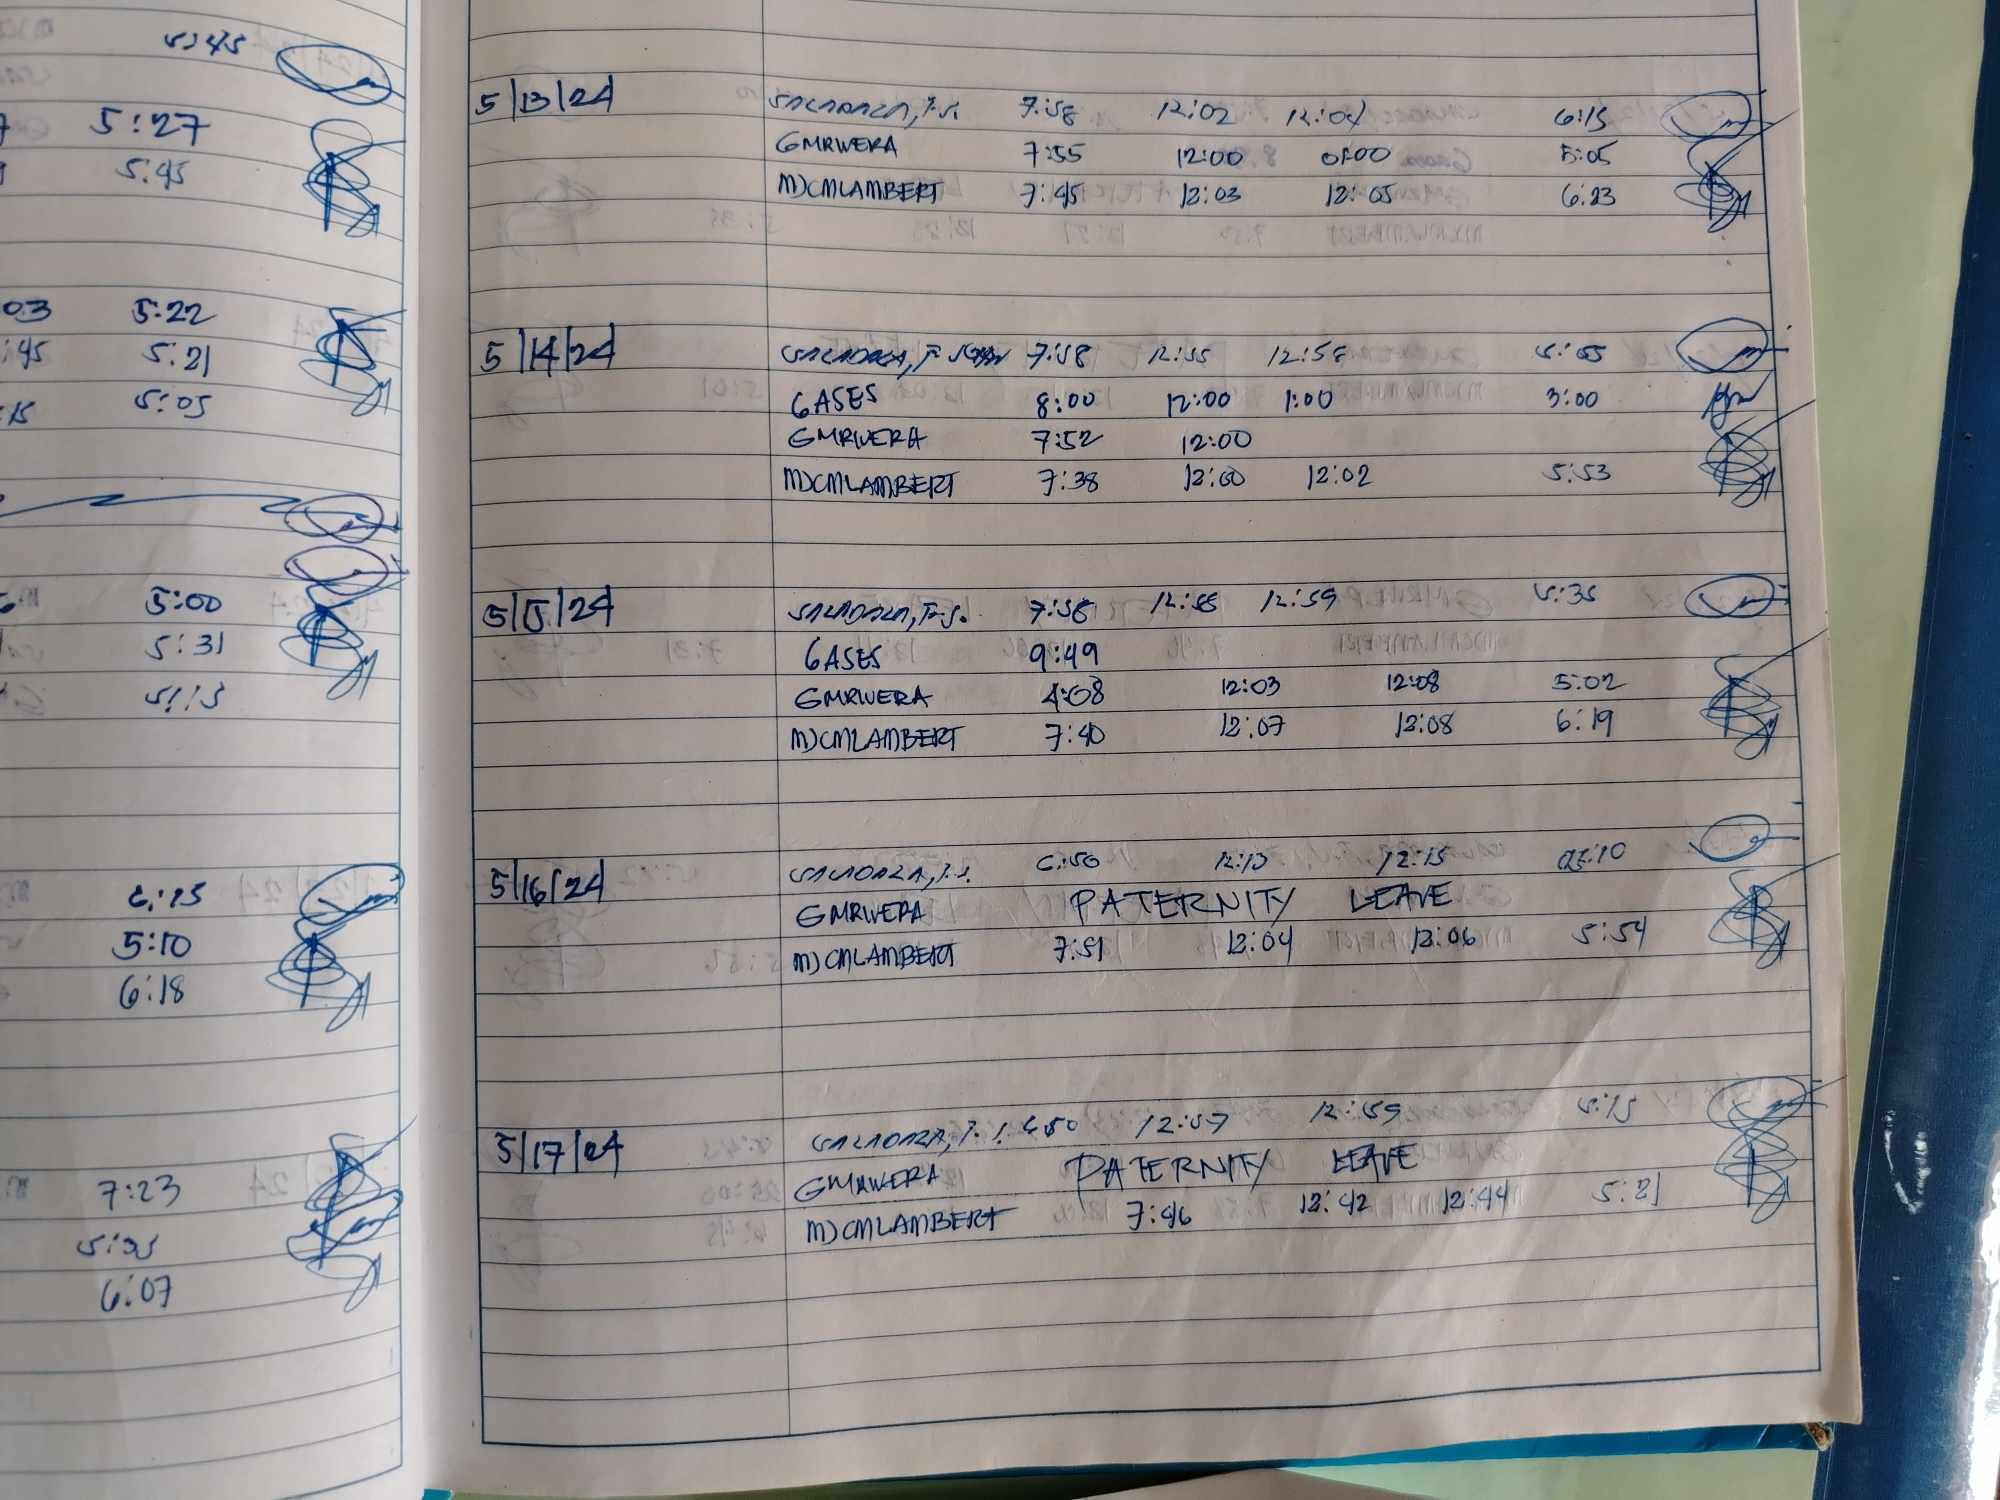 5:45
5:27
5:45
03 5:22
:45 5:21
:15 5:05
5:00
5:31
5:13
6:15
5:10
6:18
7:23
6:07
5/13/24 7:58 12:02 12:04 6:15
GMRIVERA 7:55 12:00 01:00 5:05
MJCMLAMBERT 7:45 12:03 12:05 6:23
5/14/24 7:58 12:55 12:58 5:05
GASES 8:00 12:00 1:00 3:00
GMRIVERA 7:52 12:00
MJCMLAMBERT 7:38 12:00 12:02 5:53
5/15/24 7:58 12:58 12:59 5:35
GASES 9:49
GMRIVERA 4:08 12:03 12:08 5:02
MJCMLAMBERT 7:40 12:07 12:08 6:19
5/16/24 6:50 12:13 12:15 05:10
GMRIVERA PATERNITY LEAVE
MJCMLAMBERT 7:51 12:04 12:06 5:54
5/17/24 6:50 12:57 12:59 5:15
GMRIVERA PATERNITY LEAVE
MJCMLAMBERT 7:46 12:42 12:44 5:21